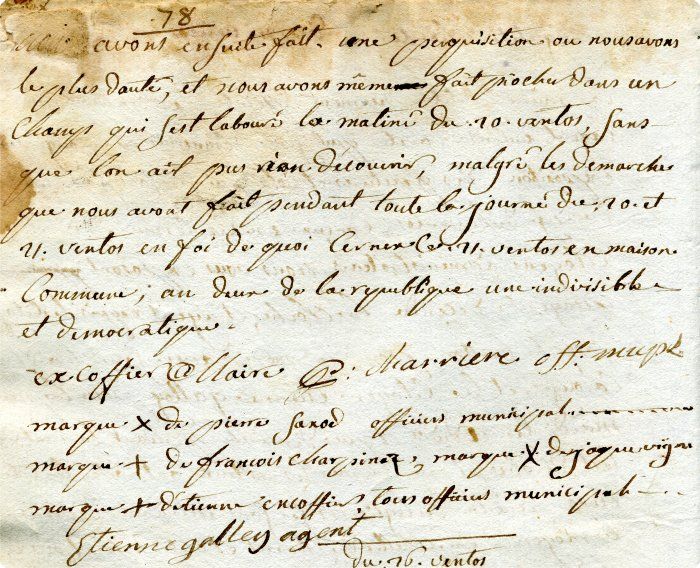 78
avons ensuite fait une perquisition ou nous avons
le plus daute, et nous avons même fait piocher dans un
Champ qui s'est labouré le matiné du 20 ventos, sans
que lon ait pus rien decouvrir, malgré les demarche
que nous avont fait pendant toute la journé du 20 et
21 ventos en foi de quoi Cernex Ce 21 ventos en maison
Commune, an deux de la republique une indivisible
et democratique.
excoffier Maire P. Marriere off. mupl
marque X de pierre officiers municipal
marque + de françois Charpinez, marque X de jaque vigne
marque + d'etienne encoffier, tous officiers municipal
Etienne galley agent
du 26 ventos